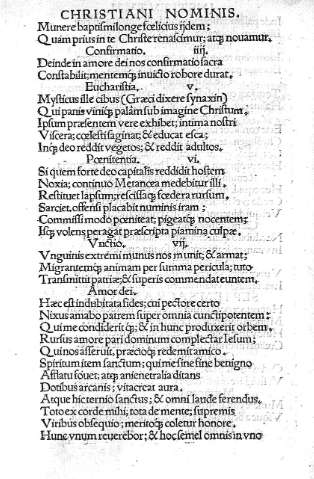 CHRISTIANI NOMINIS.
Munere baptismi longe fœlicius ijdem;
Quàm prius in te Christe renascimur; atq; nouamur.
Confirmatio. iiij.
Deinde in amore dei nos confirmatio sacra
Constabilit; mentemq; inuicto robore durat.
Eucharistia. v.
Mysticus ille cibus (Græci dixere synaxin)
Qui panis viniq; palàm sub imagine Christum
Ipsum præsentem vere exhibet; intima nostri
Viscera; cœlesti saginat; & educat esca;
Inq; deo reddit vegetos; & reddit adultos.
Pœnitentia. vj.
Si quem forte deo capitalis reddidit hostem
Noxia; continuo Metanœa medebitur illi.
Restituet lapsum; rescissaq; fœdera rursum
Sarciet. offensi placabit numinis iram;
Commissi modo pœniteat; pigeatq; nocentem;
Isq; volens peragat præscripta piamina culpæ.
Vnctio. vij.
Vnguinis extremi munus nos munit; & armat;
Migrantemq; animam per summa pericula; tuto
Transmittit patriæ; & superis commendat euntem.
Amor dei.
Hæc est indubitata fides; cui pectore certo
Nixus amabo patrem super omnia cunctipotentem
Qui me condiderit; & in hunc produxerit orbem.
Rursus amore pari dominum complectar Iesum;
Qui nos asseruit, præcioq; redemit amico.
Spiritum item sanctum; qui me sine sine benigno
Afflatu fouet. atq; animi penetralia ditans
Dotibus arcanis; vitæ creat aura.
Atque hic ternio sanctus; & omni laude ferendus.
Toto ex corde mihi, tota de mente; supremis
Viribus obsequio; meritoq; coletur honore.
Hunc vnum reuerebor; & hoc semel omnis in vno